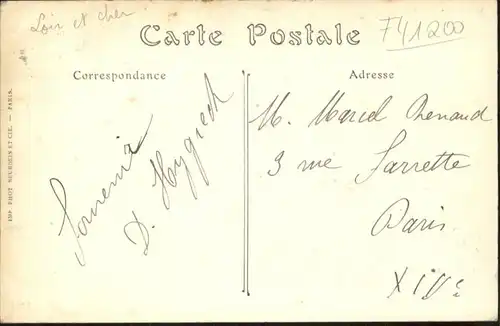 Loir et cher
F41200
Carte Postale
Correspondance
Adresse
IMP. PHOT. BOURDEIN ET CIE. — PARIS.
Souvenir
D. Hygieck
M. Marcel Renaud
3 rue Sarrette
Paris
XIVe